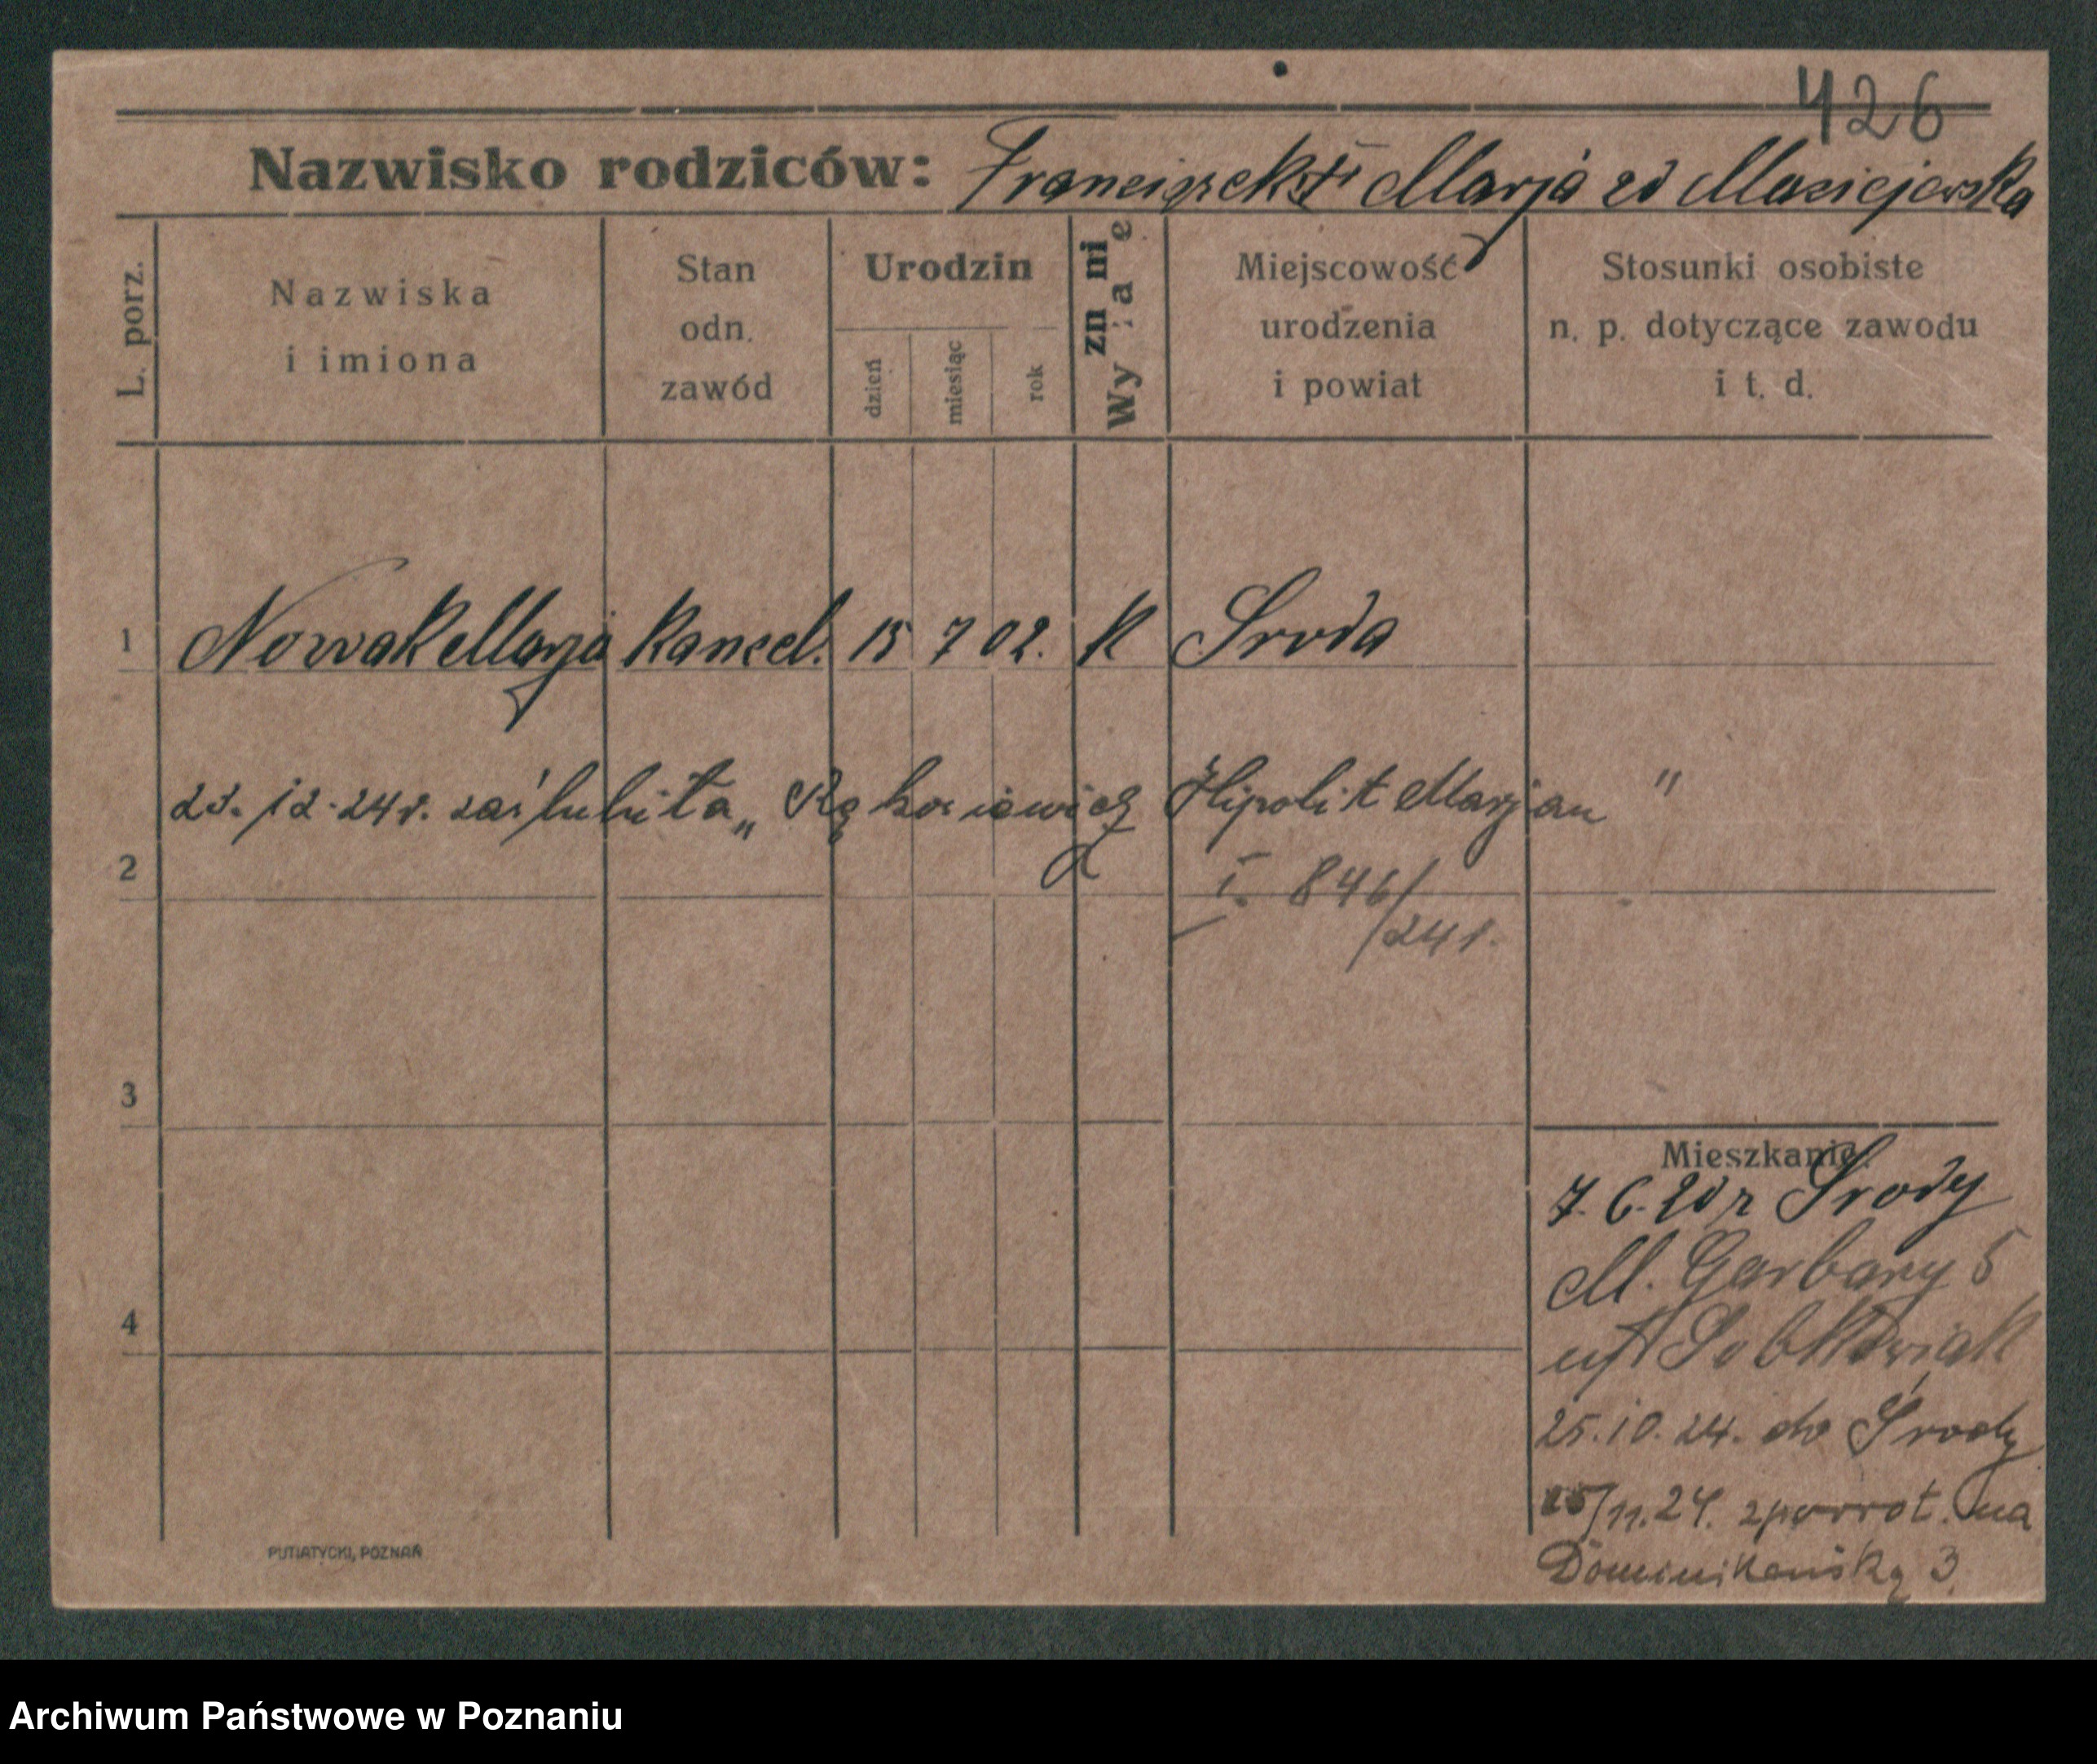 426
Nazwisko rodziców: Franciszek i Marja zd Maciejewska
L. porz.
Nazwiska i imiona
Stan odn. zawód
Urodzin
dzień
miesiąc
rok
Wyznanie
Miejscowość urodzenia i powiat
Stosunki osobiste n. p. dotyczące zawodu i t. d.
1 Nowak Marja kancel. 15 7 02. K Sroda
zaślubiła „ Hipolit Marjan "
2
I. 846/24r.
3
Mieszkanie:
7.6. Srody
M. Garbary 5
4
25.10.24. do Środy
15/11.24. zpowrot. na
Dominikańską 3
PUTIATYCKI, POZNAŃ
Archiwum Państwowe w Poznaniu